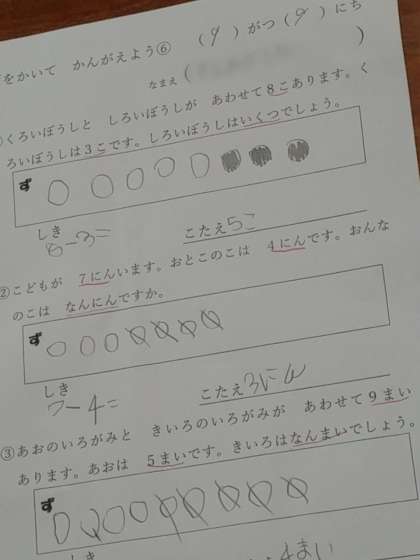 をかいて かんがえよう⑥ (9)がつ(9)にち
なまえ( )
くろいぼうしと しろいぼうしが あわせて8こあります。く
ろいぼうしは3こです。しろいぼうしはいくつでしょう。
ず
しき
8-3=
こたえ5こ
②こどもが 7にんいます。おとこのこは 4にんです。おんな
のこは なんにんですか。
ず
しき
7-4=
こたえ3にん
③あおのいろがみと きいろのいろがみが あわせて9まい
あります。あおは 5まいです。きいろはなんまいでしょう。
ず
しき
4まい